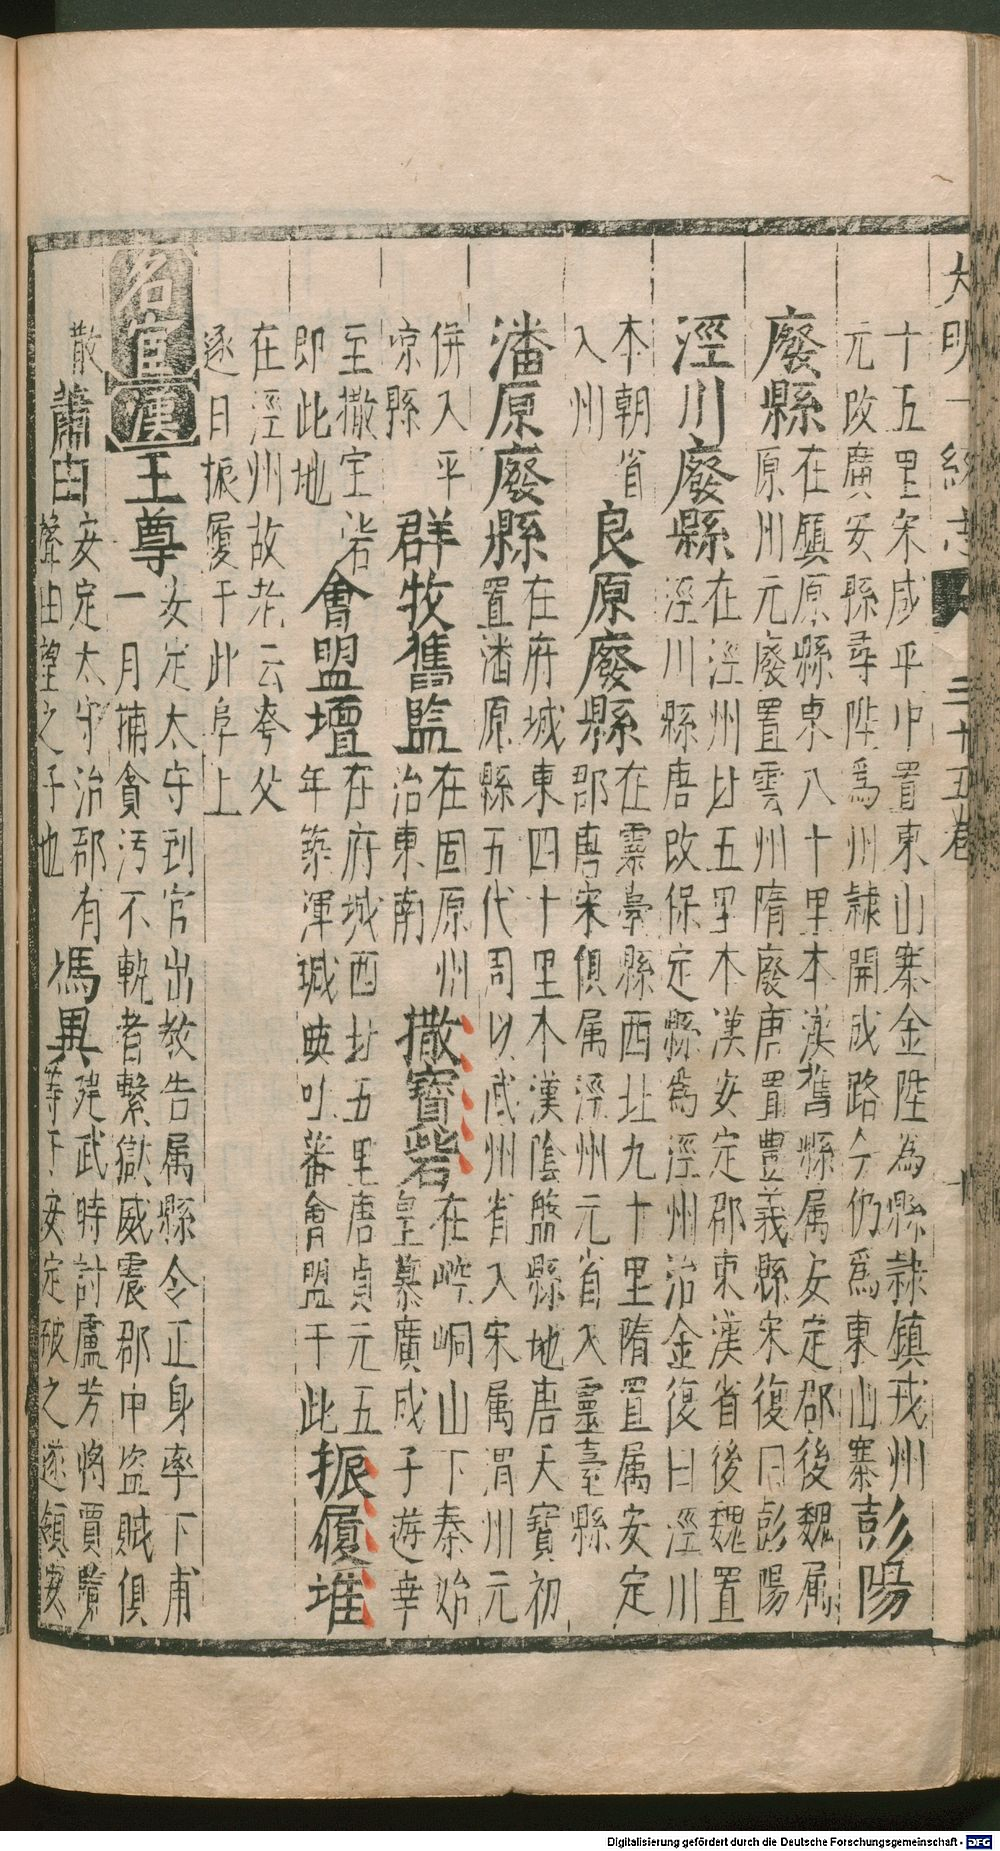 大明一統志 三十五卷 十
十五里宋咸平中置東山寨金陞為縣隷鎮戎州
元改廣安縣尋陞爲州隷開成路今仍爲東山寨
彭陽
廢縣
在鎮原縣東八十里本漢舊縣属安定郡後魏属
原州元廢置雲州隋廢唐置豊義縣宋復曰彭陽
涇川廢縣
在涇州北五里本漢安定郡東漢省後魏置
涇川縣唐改保定縣為涇州治金復曰涇川
本朝省
入州
良原廢縣
在靈臺縣西北九十里隋置属安定
郡唐宋俱属涇州元省入靈臺縣
潘原廢縣
在府城東四十里本漢陰盤縣地唐天寳初
置潘原縣五代周以武州省入宋属渭州元
併入平
凉縣
群牧舊監
在固原州
治東南
撒寳砦
在崆峒山下秦始
皇慕廣成子遊幸
至撒宝砦
即此地
會盟壇
在府城西北五里唐貞元五
年築渾瑊與吐蕃會盟于此
振履堆
在涇州故老云夸父
逐日振履于此阜上
名宦
漢
王尊
安定太守到官出教告属縣令正身率下甫
一月捕貪汚不軌者繫獄威震郡中盗賊俱
散
蕭由
安定太守治郡有
聲由望之子也
馮異
建武時討盧芳將賈覽
等下安定破之遂領安
Digitalisierung gefördert durch die Deutsche Forschungsgemeinschaft - DFG